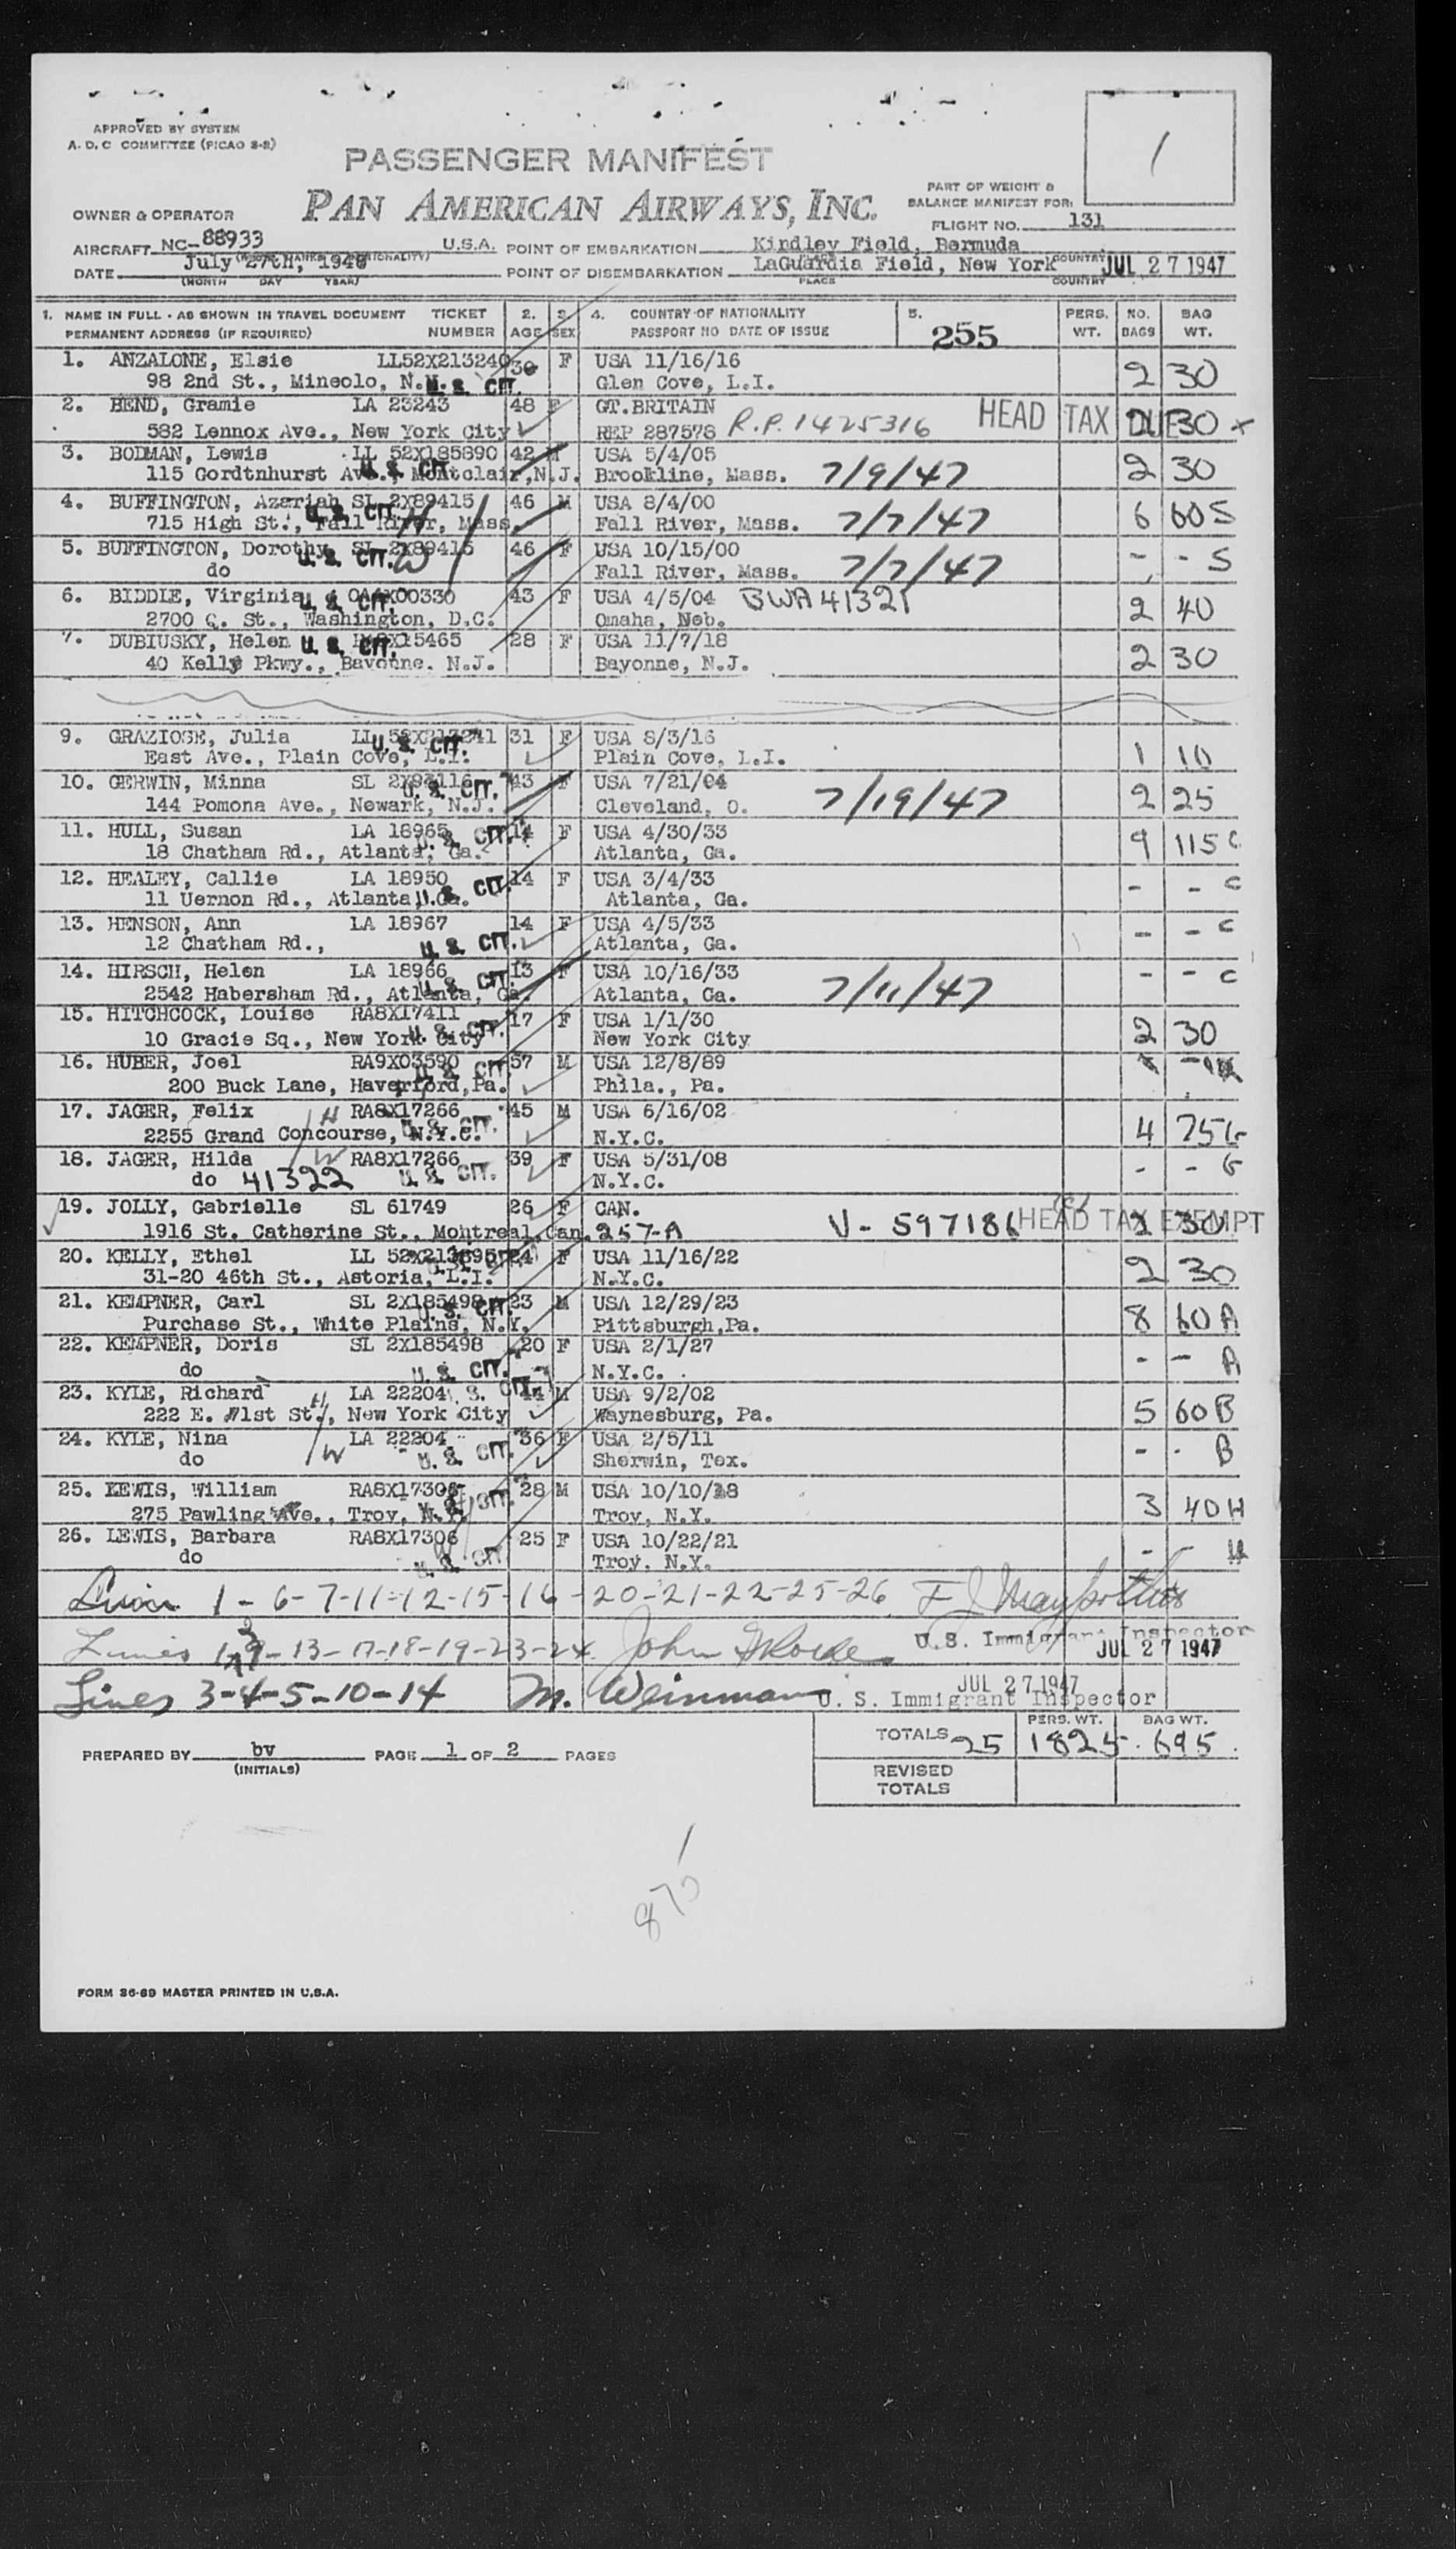 APPROVED BY SYSTEM
A. D. C COMMITTEE (PICAO 8-2)
PASSENGER MANIFEST
PAN AMERICAN AIRWAYS, INC.
1
PART OF WEIGHT &
BALANCE MANIFEST FOR:
OWNER & OPERATOR
FLIGHT NO. 131
AIRCRAFT NC-88933 U.S.A. POINT OF EMBARKATION Kindley Field, Bermuda
DATE July 27th, 1946 POINT OF DISEMBARKATION LaGuardia Field, New York COUNTRY JUL 27 1947
(MONTH DAY YEAR) PLACE COUNTRY
1. NAME IN FULL - AS SHOWN IN TRAVEL DOCUMENT TICKET 2. 3. 4. COUNTRY OF NATIONALITY 5. PERS. NO. BAG
PERMANENT ADDRESS (IF REQUIRED) NUMBER AGE SEX PASSPORT NO DATE OF ISSUE 255 WT. BAGS WT.
1. ANZALONE, Elsie LL52X213240 30 F USA 11/16/16
98 2nd St., Mineolo, N.Y. U. S. CIT. Glen Cove, L.I. 2 30
2. BEND, Gramie LA 23243 48 F GT.BRITAIN HEAD TAX DUE
582 Lennox Ave., New York City REP 287578 R.P. 1425316 2 30 x
3. BODMAN, Lewis LL 52X185890 42 M USA 5/4/05
115 Gordtnhurst Ave., Montclair, N.J. U. S. CIT. Brookline, Mass. 7/9/47 2 30
4. BUFFINGTON, Azariah SL 2X89415 46 M USA 8/4/00
715 High St., Fall River, Mass. U. S. CIT. H Fall River, Mass. 7/7/47 6 60 S
5. BUFFINGTON, Dorothy SL 2X89415 46 F USA 10/15/00
do U. S. CIT. W Fall River, Mass. 7/7/47 - - S
6. BIDDLE, Virginia U. S. CIT. 43 F USA 4/5/04 BWA 41321
2700 Q. St., Washington, D.C. Omaha, Neb. 2 40
7. DUBIUSKY, Helen U. S. CIT. 28 F USA 11/7/18
40 Kelly Pkwy., Bayonne. N.J. Bayonne, N.J. 2 30
9. GRAZIOSE, Julia LL 52X213241 31 F USA 8/3/16
East Ave., Plain Cove, L.I. U. S. CIT. Plain Cove, L.I. 1 10
10. GERWIN, Minna SL 2X93116 43 F USA 7/21/04
144 Pomona Ave., Newark, N.J. U. S. CIT. Cleveland, O. 7/19/47 2 25
11. HULL, Susan LA 18965 14 F USA 4/30/33
18 Chatham Rd., Atlanta, Ga. U. S. CIT. Atlanta, Ga. 9 115 C
12. HEALEY, Callie LA 18950 14 F USA 3/4/33
11 Uernon Rd., Atlanta, Ga. U. S. CIT. Atlanta, Ga. - - C
13. HENSON, Ann LA 18967 14 F USA 4/5/33
12 Chatham Rd., U. S. CIT. Atlanta, Ga. - - C
14. HIRSCH, Helen LA 18966 13 F USA 10/16/33
2542 Habersham Rd., Atlanta, Ga. U. S. CIT. Atlanta, Ga. 7/11/47 - - C
15. HITCHCOCK, Louise RA8X17411 17 F USA 1/1/30
10 Gracie Sq., New York City U. S. CIT. New York City 2 30
16. HUBER, Joel RA9X03590 57 M USA 12/8/89
200 Buck Lane, Haverford, Pa. U. S. CIT. Phila., Pa.
17. JAGER, Felix H RA8X17266 45 M USA 6/16/02
2255 Grand Concourse, N.Y.C. U. S. CIT. N.Y.C. 4 75 G
18. JAGER, Hilda W RA8X17266 39 F USA 5/31/08
do 41322 U. S. CIT. N.Y.C. - - G
19. JOLLY, Gabrielle SL 61749 26 F CAN. HEAD TAX EXEMPT
1916 St. Catherine St., Montreal, Can. 257-A V- 597186 2 30
20. KELLY, Ethel LL 24 F USA 11/16/22
31-20 46th St., Astoria, L.I. N.Y.C. 2 30
21. KEMPNER, Carl SL 2X185498 23 M USA 12/29/23
Purchase St., White Plains, N.Y. U. S. CIT. Pittsburgh,Pa. 8 60 A
22. KEMPNER, Doris SL 2X185498 20 F USA 2/1/27
do U. S. CIT. N.Y.C. - - A
23. KYLE, Richard H LA 22204 U. S. CIT. 44 M USA 9/2/02
222 E. 71st St., New York City Waynesburg, Pa. 5 60 B
24. KYLE, Nina W LA 22204 36 F USA 2/5/11
do U. S. CIT. Sherwin, Tex. - - B
25. LEWIS, William RA8X17306 28 M USA 10/10/18
275 Pawling Ave., Troy, N.Y. U. S. CIT. Troy, N.Y. 3 40 H
26. LEWIS, Barbara RA8X17306 25 F USA 10/22/21
do U. S. CIT Troy, N.Y. - - H
Lines 1-6-7-11-12-15-16-20-21-22-25-26
U.S. Immigrant Inspector
Lines 1 2 9-13-17-18-19-23-24 John JUL 27 1947
Lines 3-4-5-10-14 M. Weinman JUL 27 1947
U. S. Immigrant Inspector
PERS. WT. BAG WT.
TOTALS 25 1825 695
PREPARED BY bv PAGE 1 OF 2 PAGES
(INITIALS)
REVISED
TOTALS
875
FORM 36-69 MASTER PRINTED IN U.S.A.